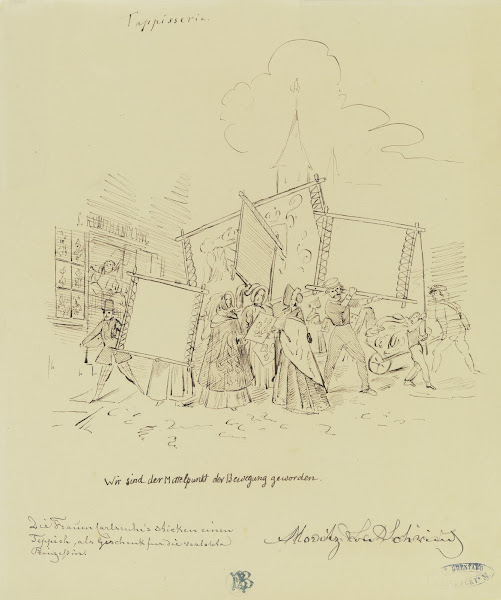 Tappisserie.
HANDLUNG
Wir sind der Mittelpunkt der Bewegung geworden.
Die Frauen Carlsruhe's sticken einen
Teppich, als Geschenk für die verlobte
Moritz von Schwind